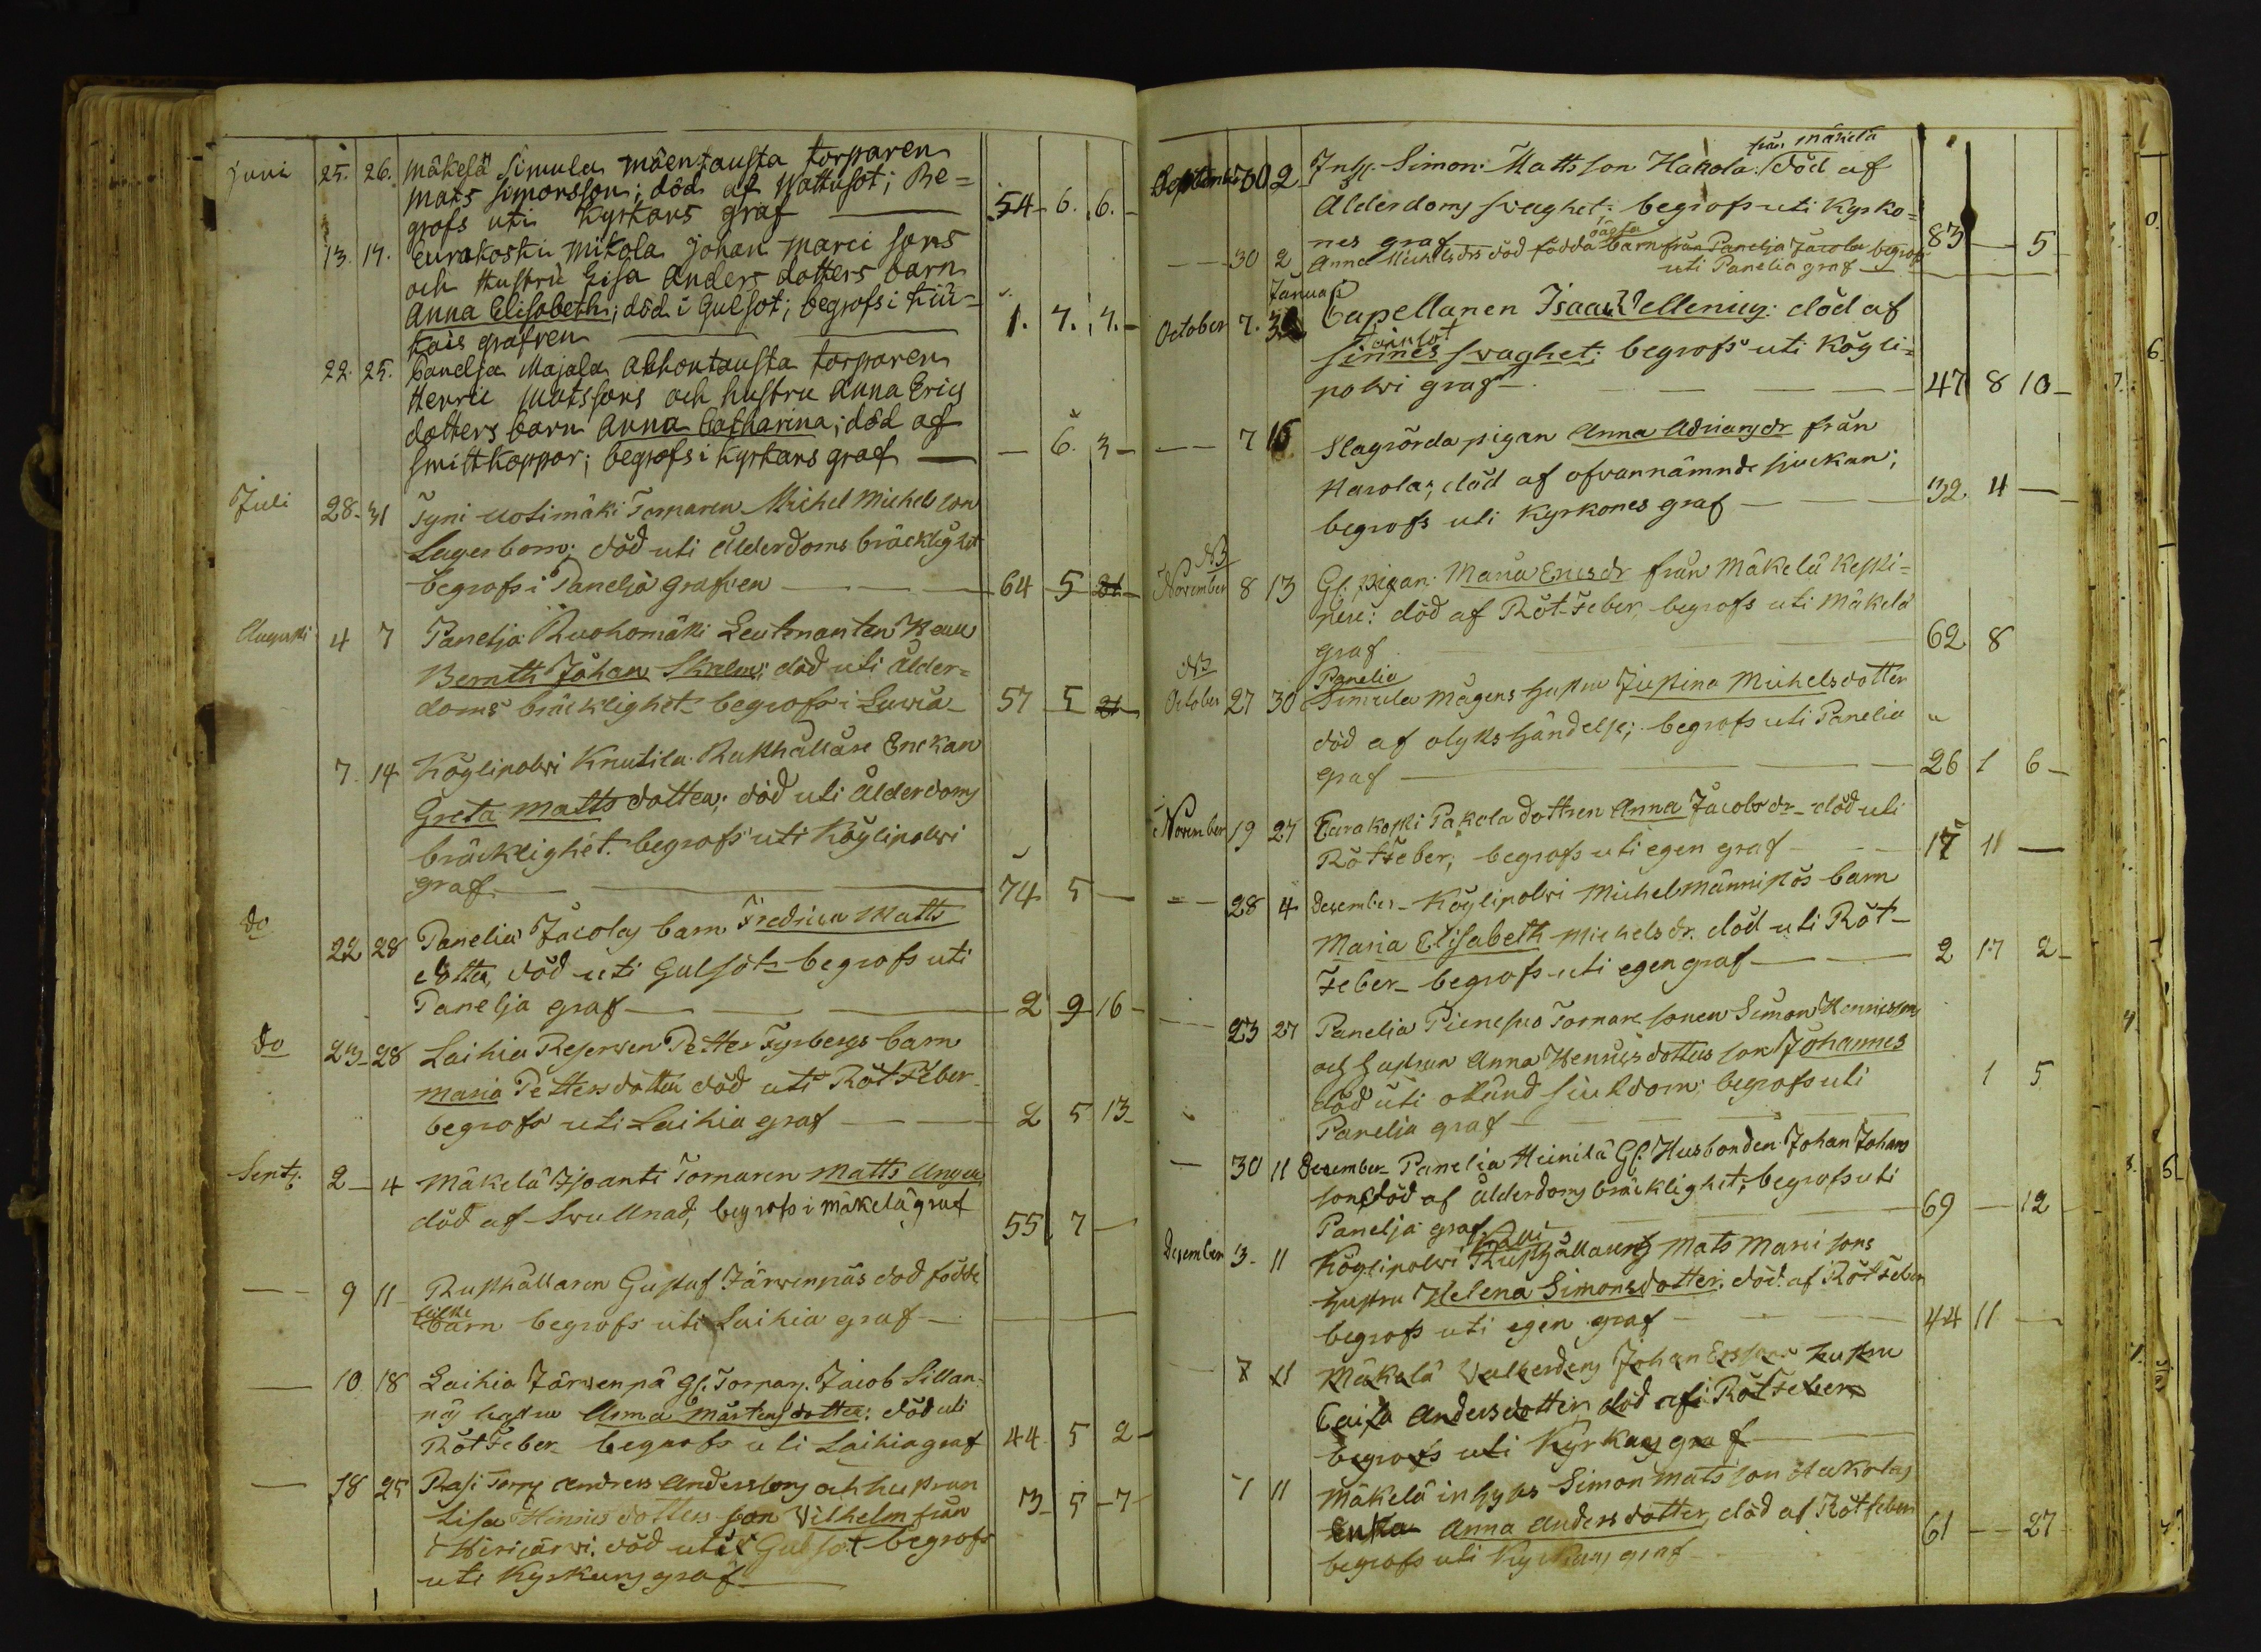 Juni 25. 26. Mäkelä Simula Mäentausta torparen
Mats Simonsson; död af Wattusot; Be=
grofs uti Kyrkans graf 54 6. 6.
13. 17. Eurakoski Mikola Johan Marci sons
och Hustru Lisa Anders dotters barn
Anna Elisabeth; död i Gulsot; begrofs i Kiu=
kais grafven 1. 7. 4.
22. 25. Panelja Majala Ahhontausta torparen
Henric Matssons och hustru Anna Erics
dotters barn Anna Catharina; död af
smittkoppor; begrofs i Kyrkans graf — 6. 3
Juli 28. 31 Tyni Uotimäki Torparen Michel Michelsson
Lagerbom; död uti ålderdoms bräcklighet
begrofs i Panelja grafven 64 5 21
Augusti 4 7 Panelja Ruohomäki Leutenanten Herr
Bernth Johan Skalm; död uti ålder=
doms bräcklighet begrofs i Luvia 57 5 21
7. 14 Köylipolvi Knutila Rusthållare Enckan
Greta Matts dotter; död uti ålderdoms
bräcklighet begrofs uti Köylipolvi
graf 74 5 —
do 22 28 Panelia Jacolas barn Fredrica Matts
dotter, död uti Gulsot begrofs uti
Panelja graf 2 9 16
do 23 28 Laihia Reserven Petter Fyrbergs barn
Maria Pettersdotter död uti Rötfeber
begrofs uti Laihia graf 2 5 13
Septb. 2 4 Mäkelä Isoanti Torparen Matts
död af Svullnad, begrofs i Mäkelä graf 55 7 —
— 9 11 Rusthållaren Gustaf Järvenpäs död födde
barn begrofs uti Laihia graf —
— 10 18 Laihia Järvenpä Gl. Torpars. Jacob Sillan=
päs hustru Anna Mårtensdotter; död uti
Rötfeber begrofs uti Laihia graf 44 5 2
— 18 25 Rasi Torp. Anders Anderssons och hustrun
Lisa Henrics dotters son Vilhelm från
Hirvijärvi, död uti Gulsot begrofs 3 5 7
uti Kyrkans graf
från Mäkelä
September 30 2 Inhs. Simon Mattsson Hakola död af
ålderdoms svaghet; begrofs uti Kyrko=
nes graf 83 — 5
oägta
— 30 2 Anna Michelsdrs död födda barn från Panelja Jacola begrofs
uti Panelia graf
Januari
October 7. Capellanen Isaac Vellenius: död af
sinnes svaghet; begrofs uti Köyli=
polvi graf 47 8 10
— 7 16 Slagrörda pigan Anna Adriansdr från
Harola; död af ofvannämnde sjuckan;
begrofs uti Kyrkones graf 32. 4 —
NB
November 8 13 Gl. pigan Maria Ericsdr från Mäkelä Keski=
: död af Röt-Feber begrofs uti Mäkelä
graf 62 8
NB Panelia
October 27 30 Simula Mågens hustru Justina Michelsdotter
död af olyks händelse; begrofs uti Panelia
graf 26 1 6
November 19 27 Eurakoski Pakola dottren Anna Jacobsdr. död uti
Rötfeber; begrofs uti egen graf 17 11 —
— 28 4 December Köylipolvi Michel Männistös barn
Maria Elisabeth Michelsdr. död uti Röt-
Feber begrofs uti egen graf 2 17 2
— 23 27 Panelia Torpare sonen Simon Henricsons
och hustrun Anna Henricsdotters son Johannes
död uti okänd siukdom; begrofs uti 1 5
Panelja graf
— 30 11 December Panelia Heinilä Gl. Husbonden Johan Johans
son död af ålderdoms bräcklighet; begrofs uti
Panelja graf 69 — 12
December 3. 11 Köylipolvi Rusthållarens Mats Marci sons
hustru Helena Simonsdotter; död af Rötfeber
begrofs uti egen graf 44 11 —
— 7 11 Mäkelä Johan Erssons hustru
Caisa Andersdotter död af Rötfeber
begrofs uti Kyrkans graf
7 11 Mäkelä inhyses Simon Matsson Hakolas
Enka Anna Andersdotter, död af Rötfeber 61 — 27
begrofs uti Kyrkans graf